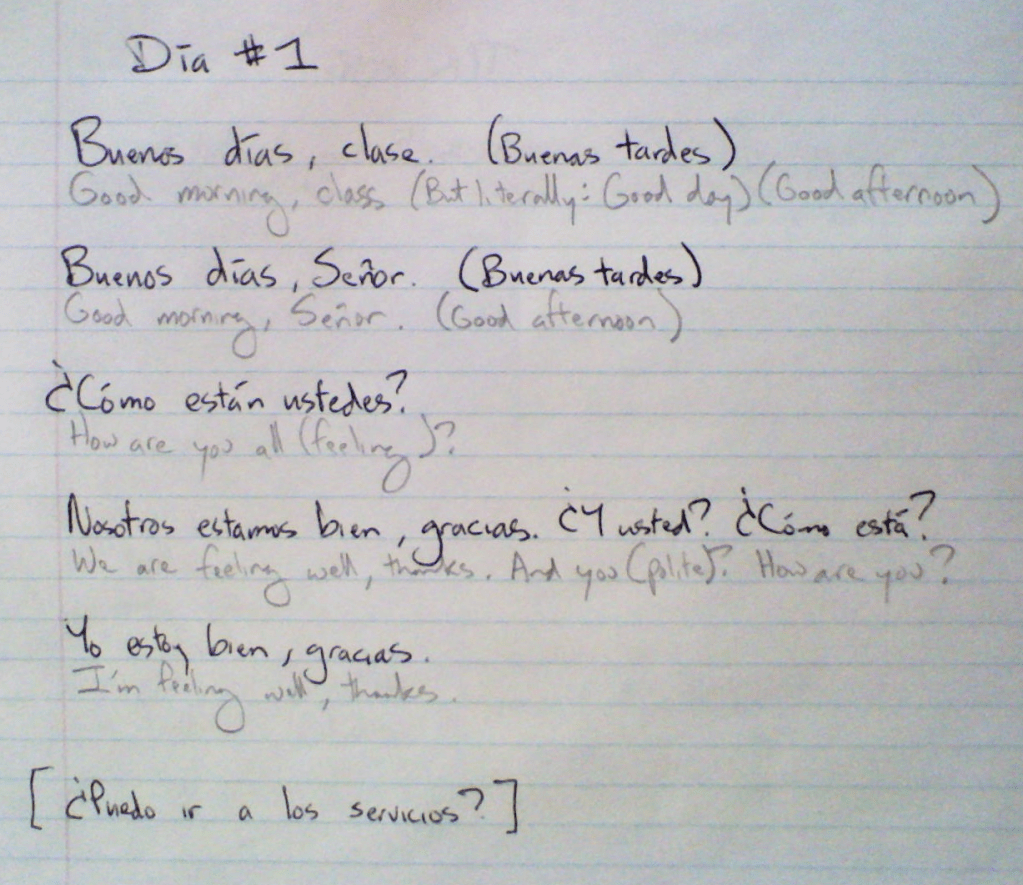 Día #1
Buenos días, clase. (Buenas tardes)
Good morning, class (But literally: Good day) (Good afternoon)
Buenos días, Señor. (Buenas tardes)
Good morning, Señor. (Good afternoon)
¿Cómo están ustedes?
How are you all (feeling)?
Nosotros estamos bien, gracias. ¿Y usted? ¿Cómo está?
We are feeling well, thanks. And you (polite)? How are you?
Yo estoy bien, gracias.
I'm feeling well, thanks.
[¿Puedo ir a los servicios?]